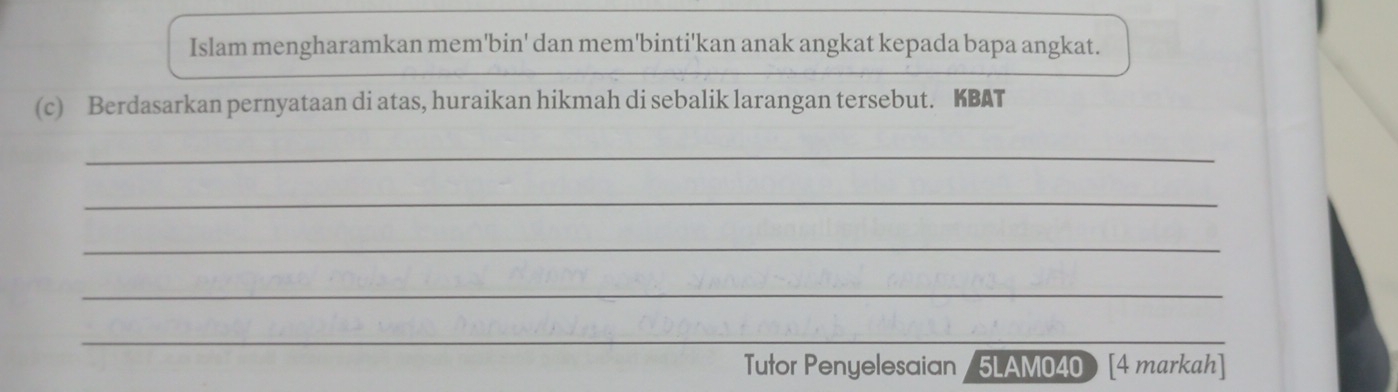 Islam mengharamkan mem'bin' dan mem'binti'kan anak angkat kepada bapa angkat.
(c) Berdasarkan pernyataan di atas, huraikan hikmah di sebalik larangan tersebut. KBAT
Tutor Penyelesaian 5LAM040 [4 markah]